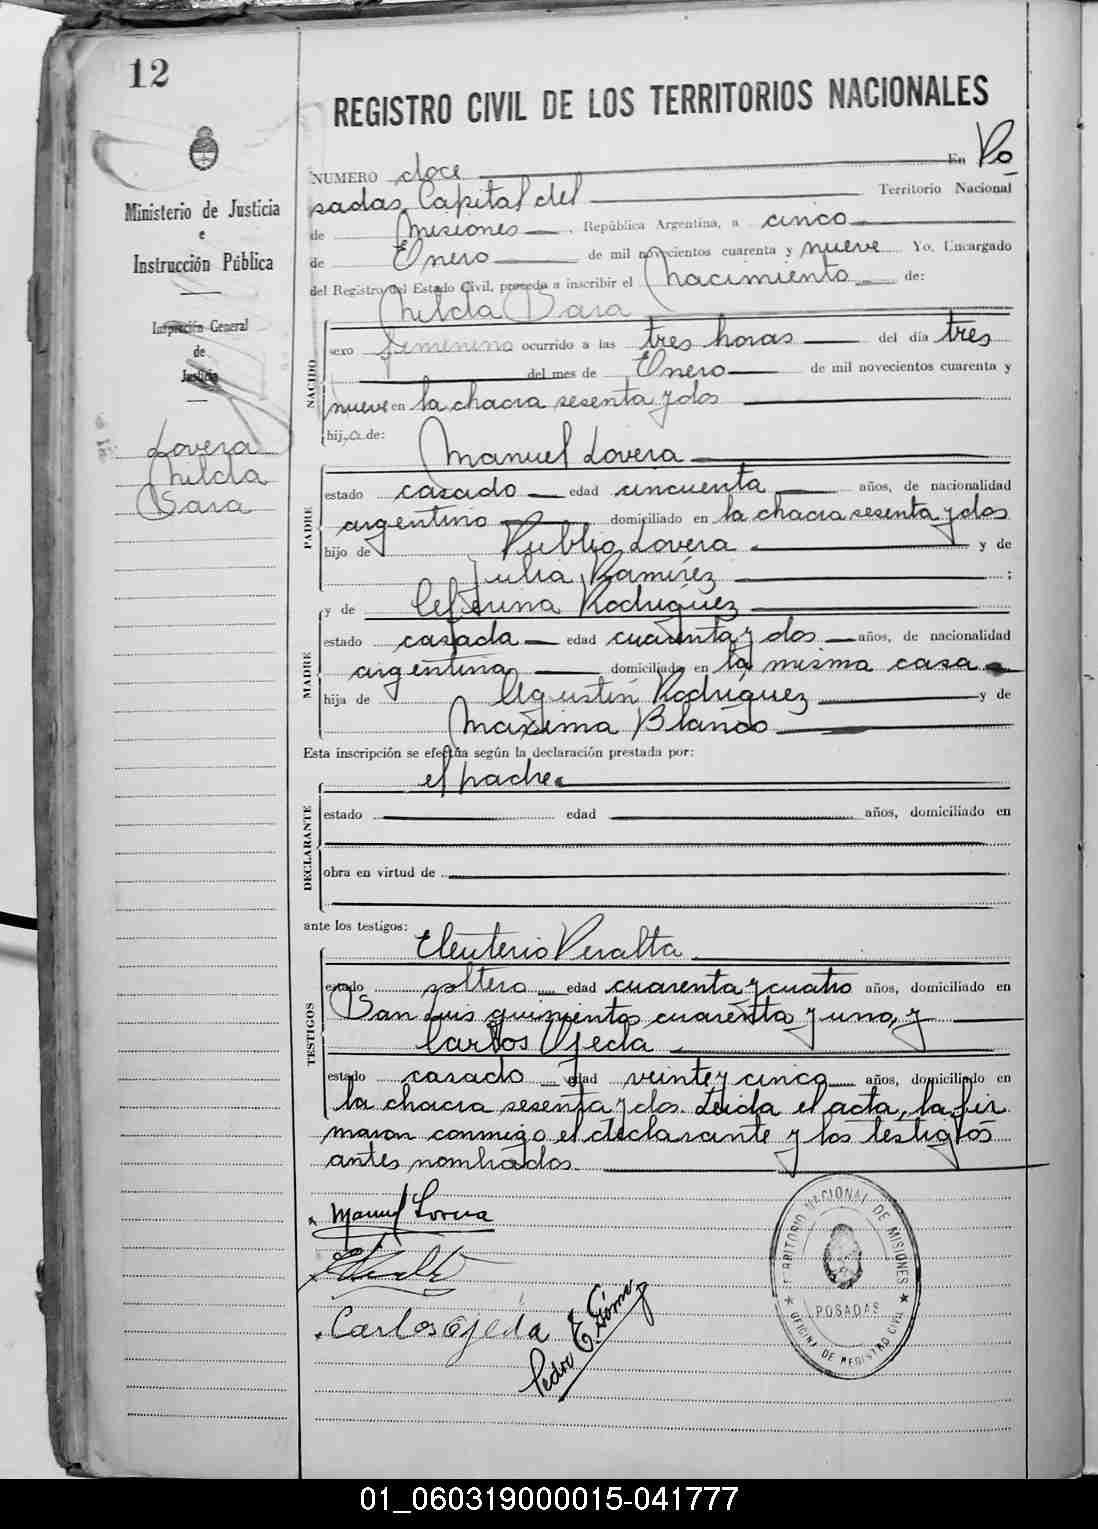 12
REGISTRO CIVIL DE LOS TERRITORIOS NACIONALES
Ministerio de Justicia
e
Instrucción Pública
Inspección General
de
Justicia
Lovera
Nilda
Sara
NUMERO doce En Po
sadas Capital del Territorio Nacional
de Misiones, República Argentina, a cinco
de Enero de mil novecientos cuarenta y nueve Yo, Encargado
del Registro del Estado Civil, procedo a inscribir el Nacimiento de:
Nilda Sara
NACIDO
sexo femenino ocurrido a las tres horas del día tres
del mes de Enero de mil novecientos cuarenta y
nueve en la chacra sesenta y dos
hija de:
Manuel Lovera
PADRE
estado casado edad cincuenta años, de nacionalidad
argentino domiciliado en la chacra sesenta y dos
hijo de Publio Lovera y de
Julia Ramírez ;
y de Ceferina Rodríguez
MADRE
estado casada edad cuarenta y dos años, de nacionalidad
argentina domiciliada en la misma casa
hija de Agustín Rodríguez y de
Máxima Blanco
Esta inscripción se efectúa según la declaración prestada por:
el padre
DECLARANTE
estado edad años, domiciliado en
obra en virtud de
ante los testigos:
Eleuterio Peralta
TESTIGOS
estado soltero edad cuarenta y cuatro años, domiciliado en
San Luis quinientos cuarenta y uno, y
Carlos Ojeda
estado casado edad veinte y cinco años, domiciliado en
la chacra sesenta y dos. Leida el acta, la fir
maron conmigo el declarante y los testigos
antes nombrados.
Manuel Lovera
Carlos Ojeda
Pedro E. Gómez
TERRITORIO NACIONAL DE MISIONES
POSADAS
OFICINA DE REGISTRO CIVIL
01_060319000015-041777